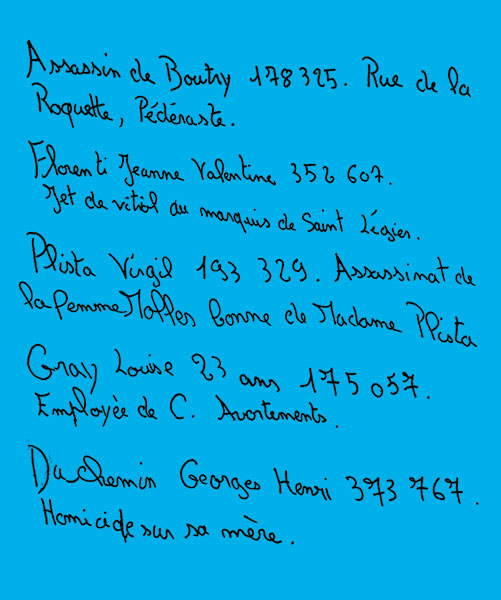 Assassin de Boutry 178325. Rue de la
Roquette, Pédéraste.
Florenti Jeanne Valentine 352 607.
Jet de vitiol au marquis de Saint Légier.
Plista Virgil 193 329. Assassinat de
la femme Molles bonne de Madame Plista
Gray Louise 23 ans 175 057.
Employée de C. Avortements.
Duchemin Georges Henri 373 767.
Homicide sur sa mère.